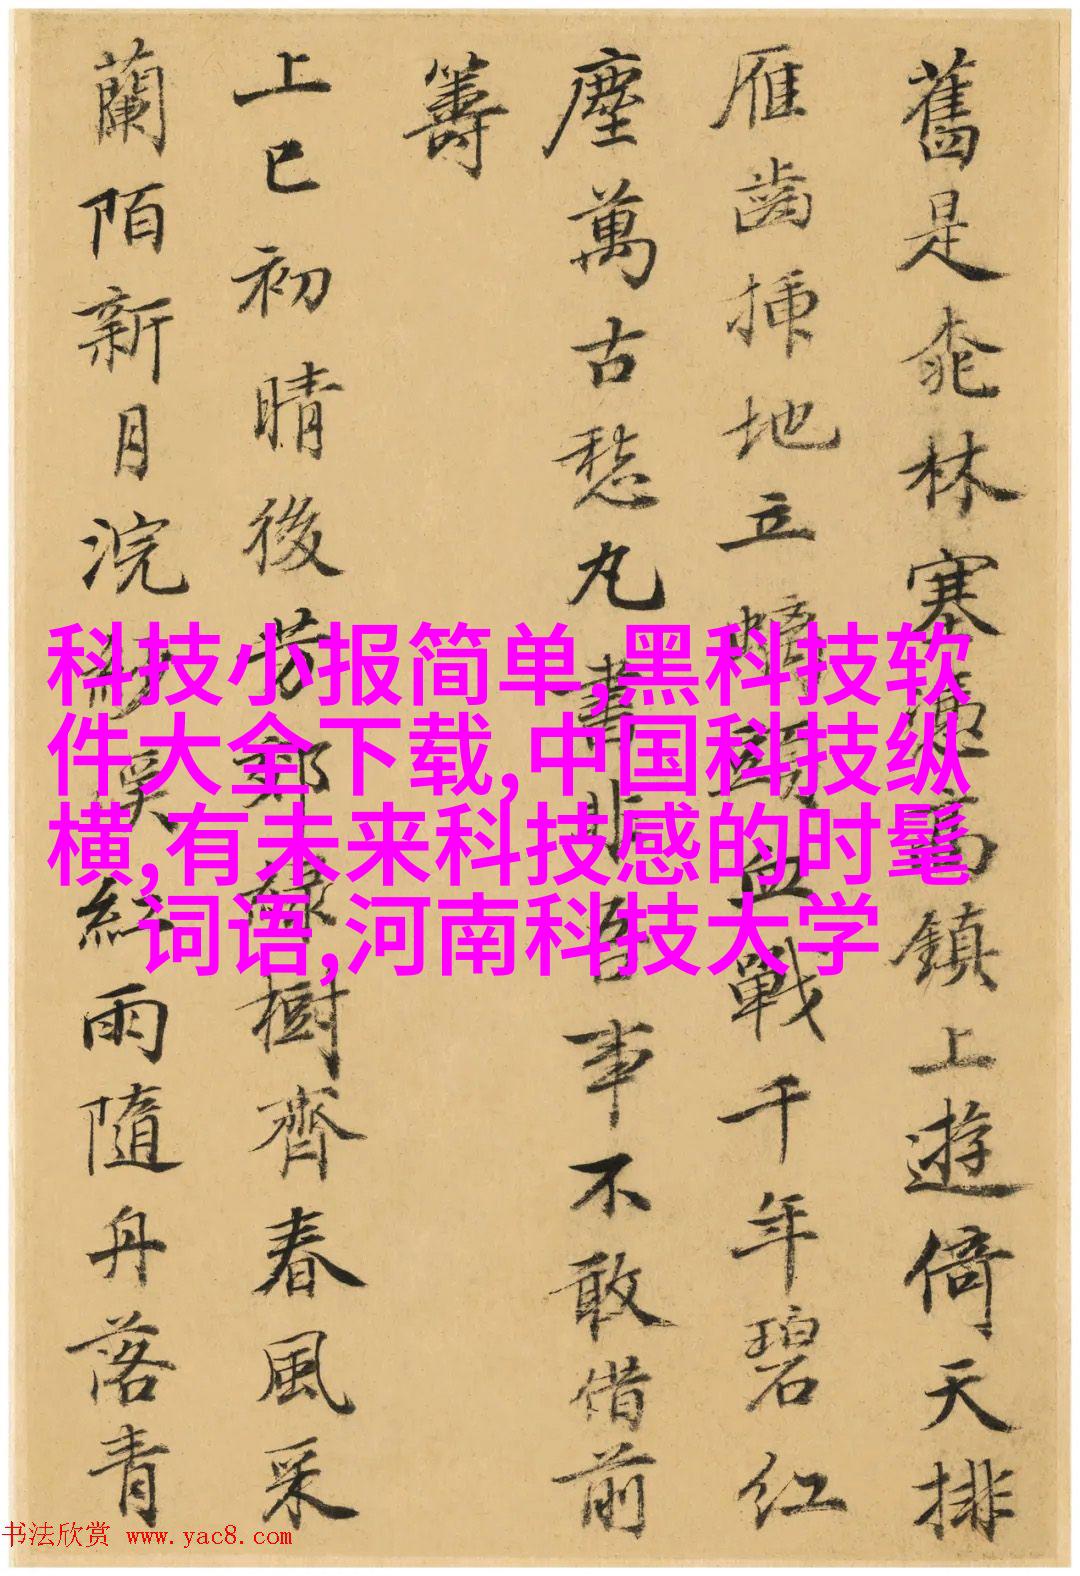 舊是林塞高鎮上遊倚天排
雁齒插地立螭頭血戰千年碧紅
塵萬古愁丸書非吾事不敢借前
籌
上巳初晴後芳郊綠樹齊春風采
蘭陌新月浣紗溪紅雨隨舟落青
科技小报简单,黑科技软
件大全下载,中国科技纵
横,有未来科技感的时髦
词语,河南科技大学
书法欣赏 www.yac8.com